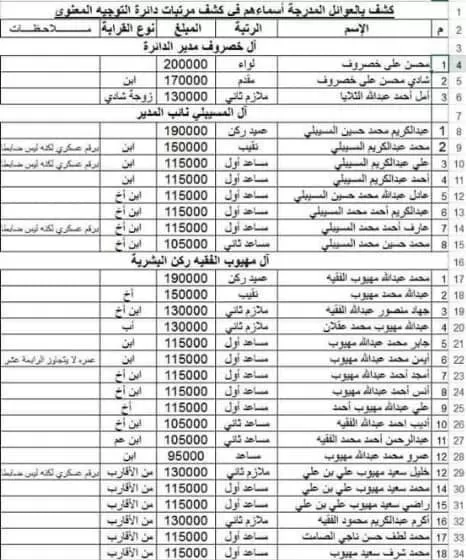 1 كشف بالعوائل المدرجة أسماءهم فى كشف مرتبات دائرة التوجيه المعنوي
2 م الإسم الرتبة المبلغ نوع القرابة مــلاحـظـــات
3 آل خصروف مدير الدائرة
4 1 محسن على خصروف لواء 200000
5 2 شادي محسن على خصروف مقدم 170000 ابن
6 3 أمل أحمد عبدالله الثلايا ملازم ثاني 130000 زوجة شادي
7 آل المسيبلي نائب المدير
8 1 عبدالكريم محمد حسين المسيبلي عميد ركن 190000
9 2 محمد عبدالكريم المسيبلي نقيب 150000 ابن برقم عسكري لكنه ليس ضابط
10 3 علي عبدالكريم المسيبلي مساعد أول 115000 ابن برقم عسكري لكنه ليس ضابط
11 4 أحمد عبدالكريم المسيبلي مساعد أول 115000 ابن
12 5 عادل عبدالله محمد حسين المسيبلي مساعد أول 115000 ابن أخ
13 6 عبدالكريم أحمد محمد المسيبلي مساعد أول 115000 ابن أخ
14 7 عارف أحمد محمد المسيبلي مساعد أول 115000 ابن أخ برقم عسكري لكنه ليس ضابط
15 8 محمد حسين محمد المسيبلي مساعد ثاني 105000 ابن أخ
16 آل مهيوب الفقيه ركن البشرية
17 1 محمد عبدالله مهيوب الفقيه عميد ركن 190000
18 2 عبدالله محمد مهيوب نقيب 150000 أخ
19 3 جهاد منصور عبدالله الفقيه ملازم ثاني 130000 ابن أخ
20 4 عبدالله مهيوب محمد عقلان ملازم ثاني 130000 أب
21 5 جابر محمد عبدالله مهيوب مساعد أول 115000 ابن
22 6 أيمن محمد عبدالله مهيوب مساعد أول 115000 ابن عمره لا يتجاوز الرابعة عشر
23 7 أمجد أحمد عبدالله مهيوب مساعد أول 115000 ابن أخ
24 8 أنس أحمد عبدالله مهيوب مساعد أول 115000 ابن أخ
25 9 علي عبدالله مهيوب أحمد مساعد أول 115000 أخ
26 10 أديب احمد عبدالله الفقيه مساعد ثاني 105000 ابن أخ
27 11 عبدالرحمن أحمد محمد الفقيه مساعد ثاني 105000 ابن عم
28 12 عمرو محمد عبدالله مهيوب مساعد 95000 ابن
29 12 خليل سعيد مهيوب علي بن علي ملازم ثاني 130000 من الأقارب برقم عسكري لكنه ليس ضابط
30 14 محمد سعيد مهيوب علي بن علي مساعد أول 115000 من الأقارب
31 15 راضي سعيد مهيوب علي بن علي مساعد أول 115000 من الأقارب
32 16 أكرم عبدالكريم محمود الفقيه ملازم ثاني 130000 من الأقارب
33 17 محمد لطف حسن ناجي الصامت مساعد أول 115000 من الأقارب
34 18 محمد شرف سعيد مهيوب مساعد أول 115000 من الأقارب